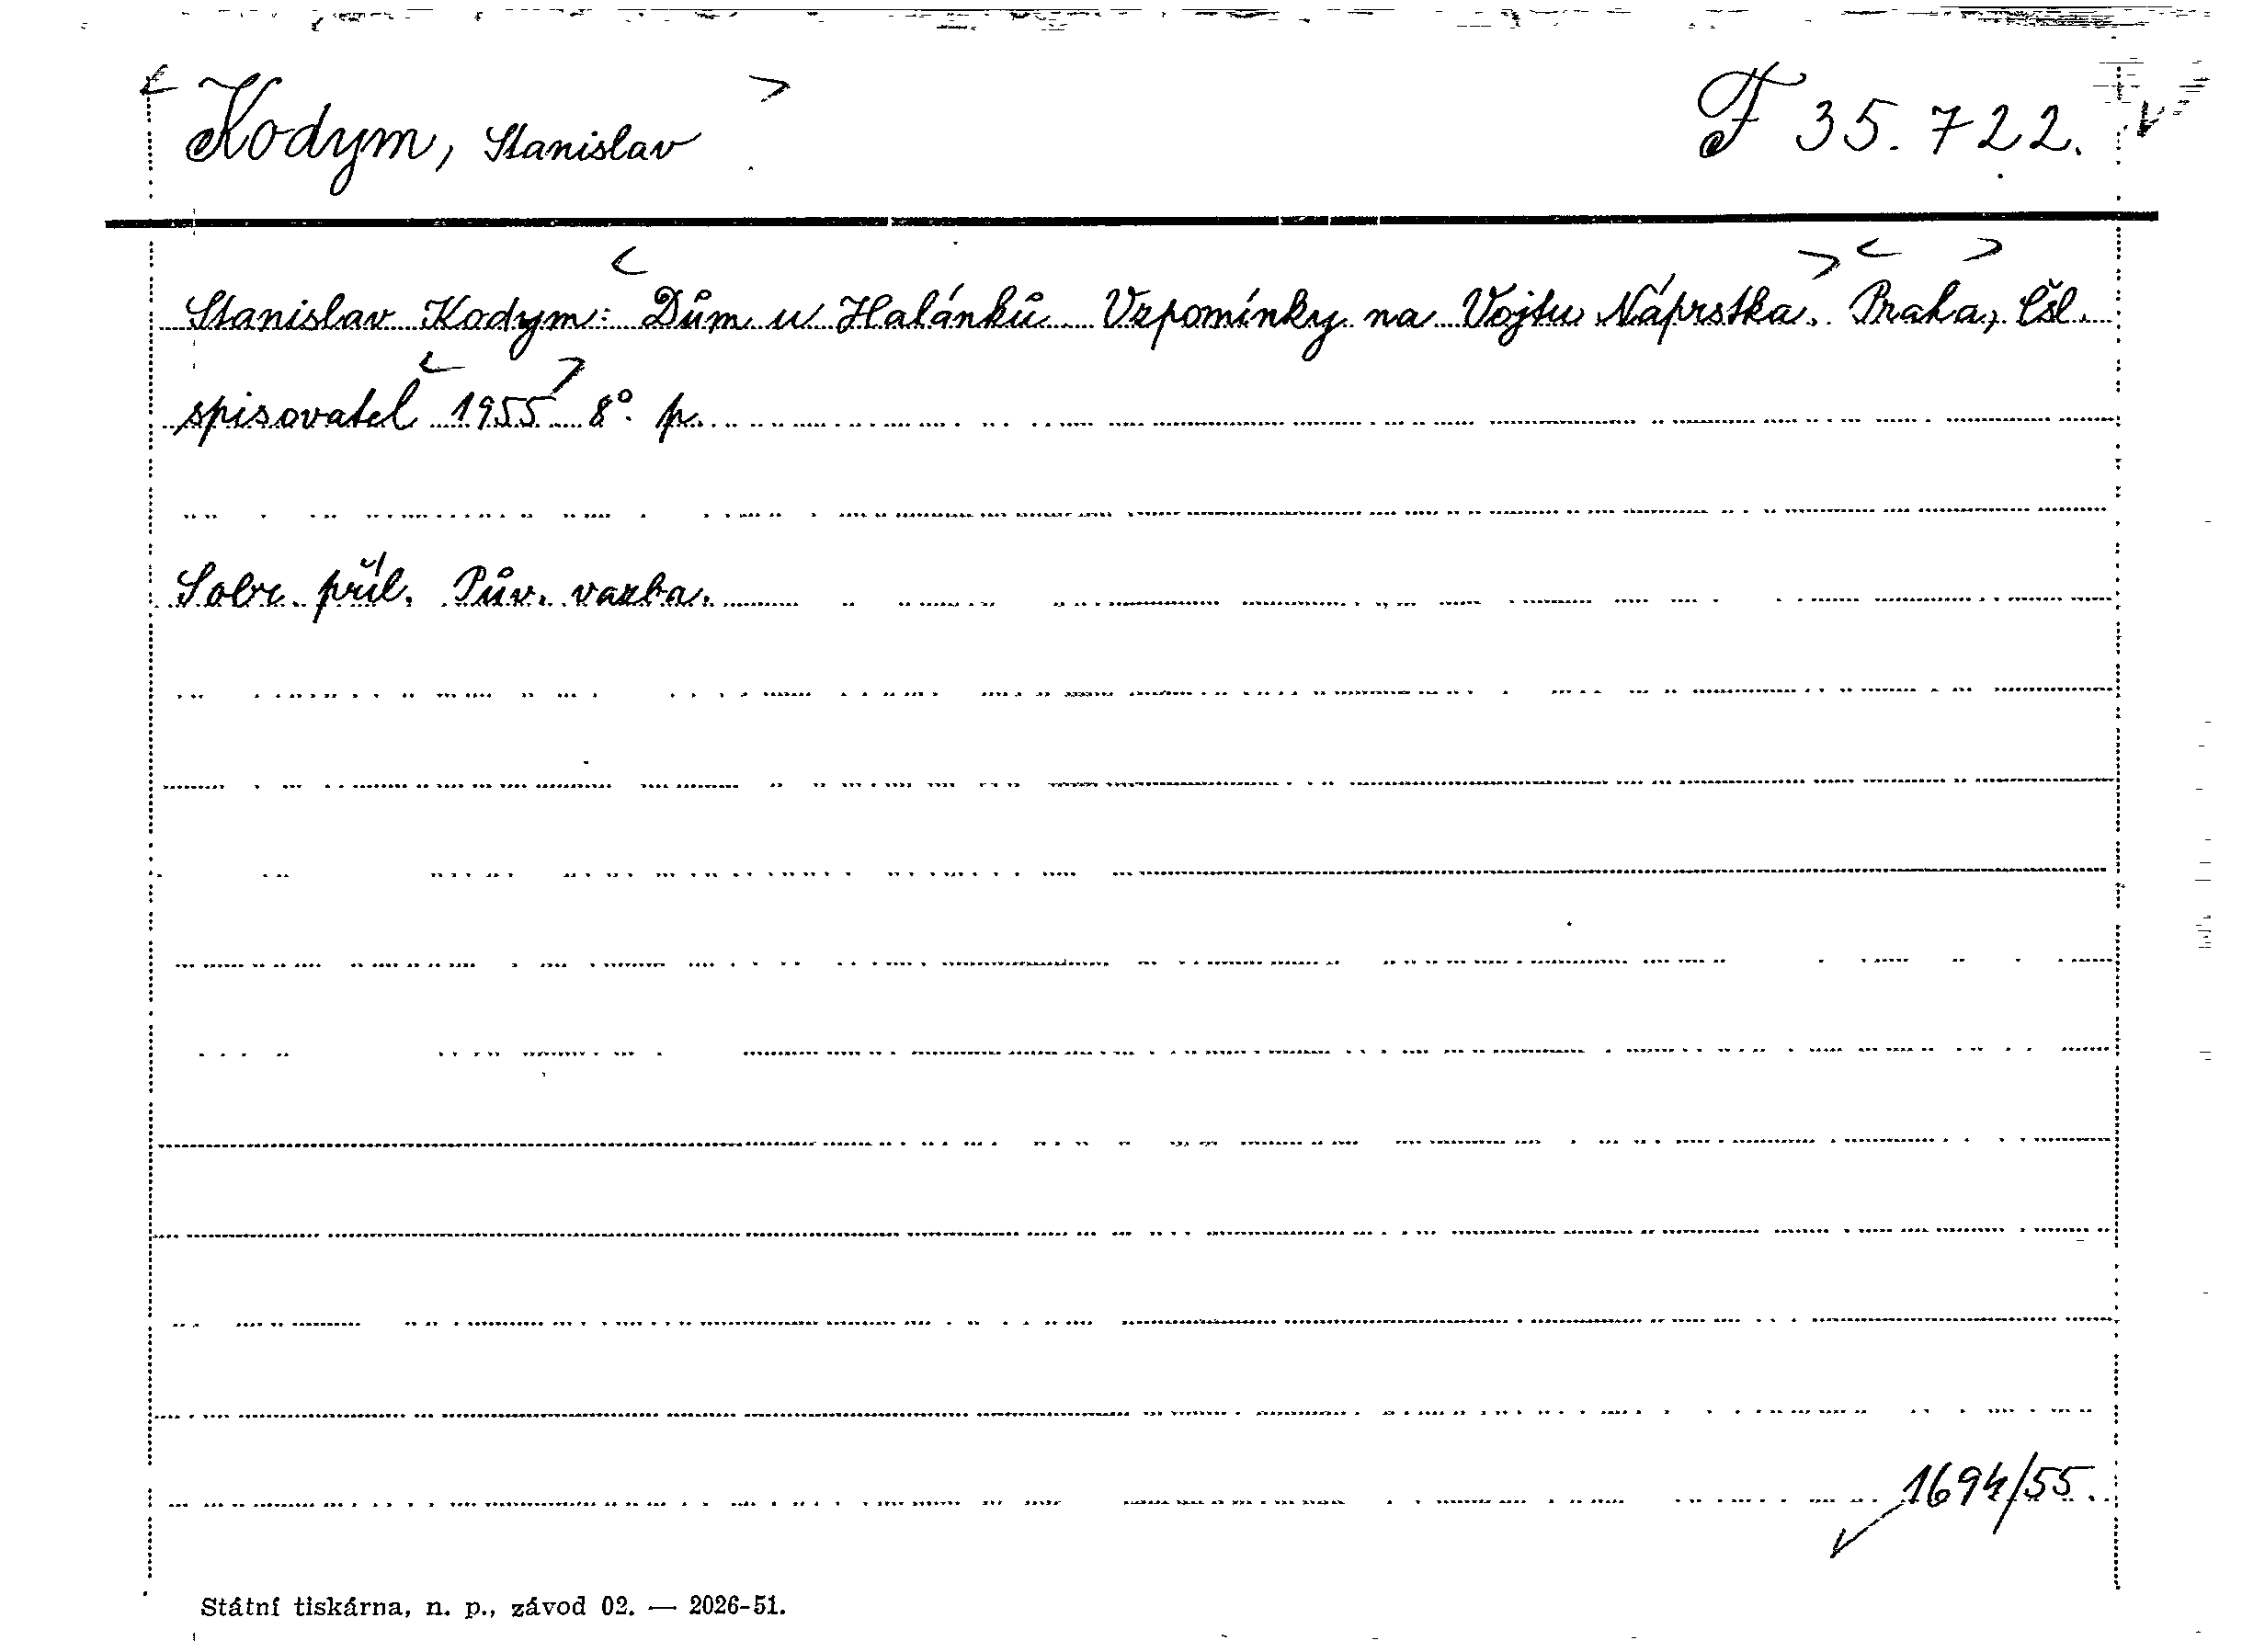 Kodym, Stanislav
F 35.722.
Stanislav Kodym: Dům u Halánků Vzpomínky na Vojtu Náprstka. Praha, Čsl.
spisovatel 1955 8°. p.
Sobr. příl. Pův. vazba.
1694/55.
Státní tiskárna, n. p., závod 02. — 2026-51.